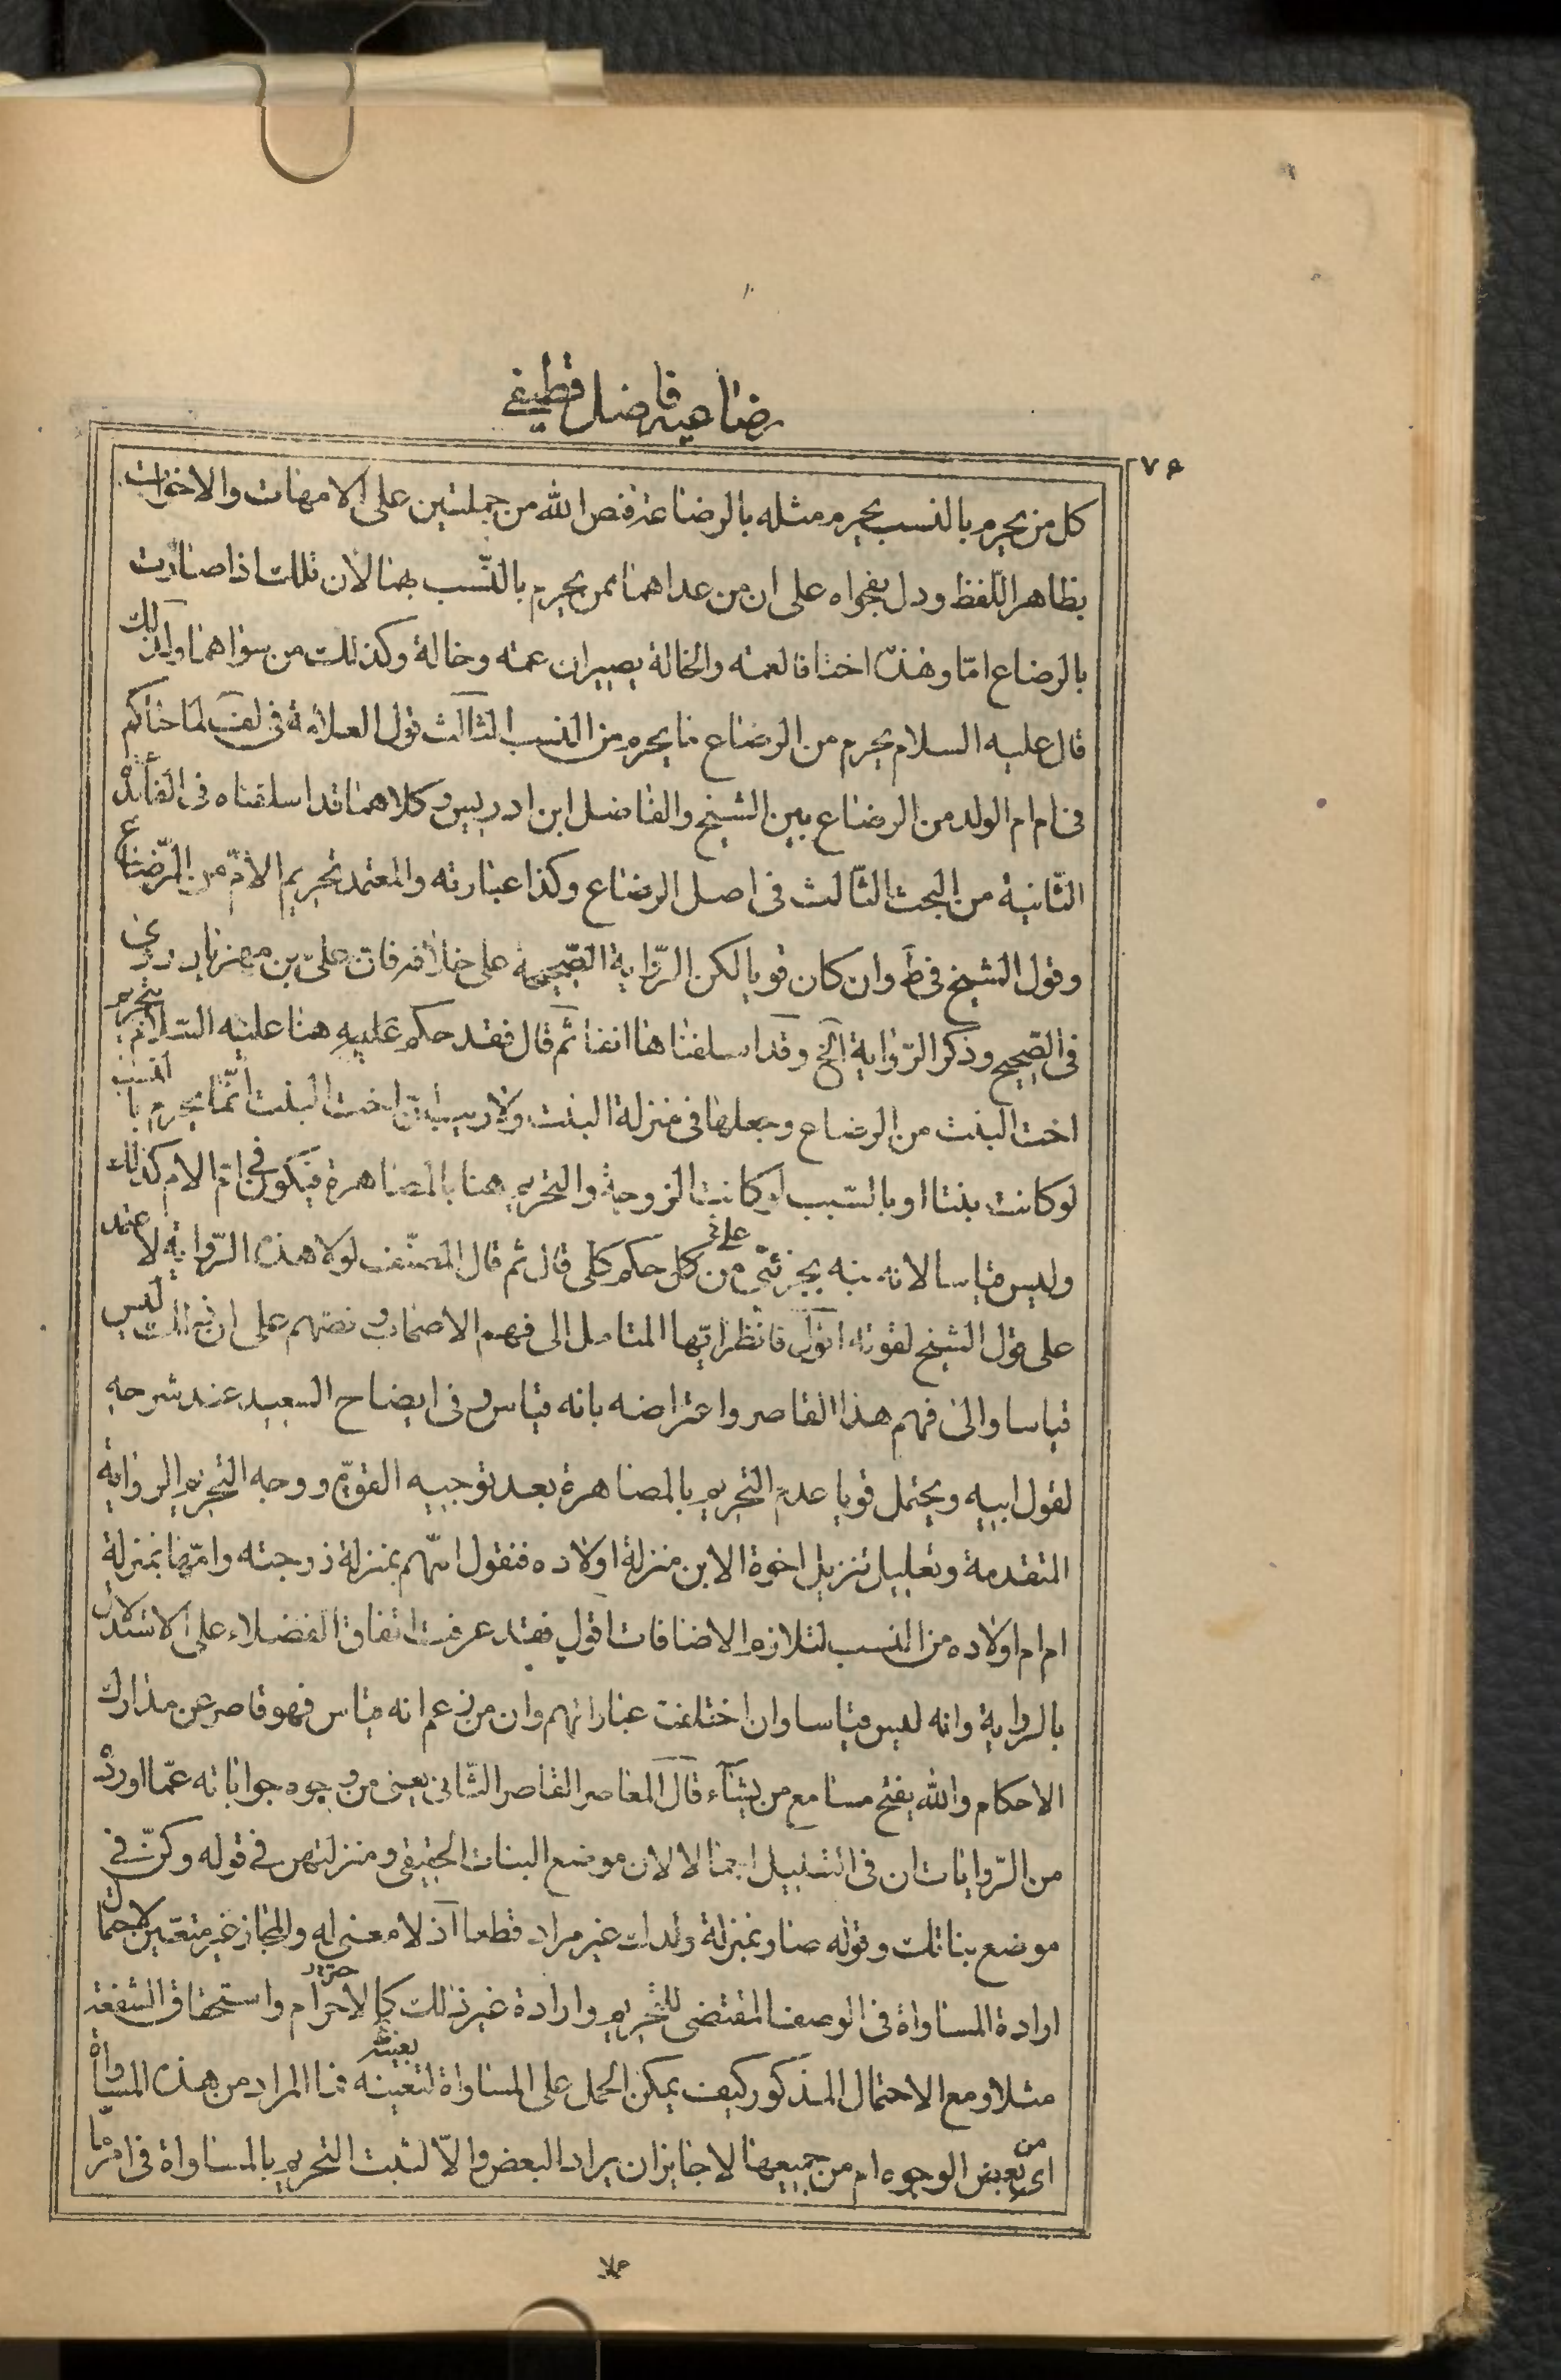 رضاعيه فاضل قطيفي
٧٥
كل من يحرم بالنسب يحرم مثله بالرضاعة فنص الله من جملتين على الامهات والاخوات
بظاهر اللفظ ودل بفحواه على ان من عداهما ممن يحرم بالنسب بهما لان تلك اذا صارت
بالرضاع اما وهذه اختا فالعمة والخالة يصيران عمة وخالة وكذلك من سواهما ولذلك
قال عليه السلام يحرم من الرضاع ما يحرم من النسب الثالث قول العلامة في لف لما حاكم
في ام ام الولد من الرضاع بين الشيخ والفاضل ابن ادريس وكلاهما قد اسلفناه في الفائدة
الثانية من البحث الثالث في اصل الرضاع وكذا عبارته والمعتمد تحريم الام من الرضاع
وقول الشيخ في ط وان كان قويا لكن الرواية الصحيحة على خلافه فان علي بن مهزيار روى
في الصحيح وذكر الرواية الخ وقد اسلفناها انفا ثم قال فقد حكم عليه هنا عليه السلام بتحريم
اخت البنت من الرضاع وجعلها في منزلة البنت ولا ريب ان اخت البنت انما يحرم بالنسب
لو كانت بنتا او بالسبب لو كانت الزوجة والتحريم هنا بالمصاهرة فيكون في ام الام كذلك
وليس قياسا لانه نبه بجزئي من على كل حكم كلي قال ثم قال المصنف لولا هذه الرواية لاعتمد
على قول الشيخ لقوته اقول فانظر ايها المتامل الى فهم الاصحاب ونصهم على ان ذلك ليس
قياسا والى فهم هذا القاصر واعتراضه بانه قياس وفي ايضاح السعيد عند شرحه
لقول ابيه ويحتمل قويا عدم التحريم بالمصاهرة بعد توجيه القوي ووجه التحريم الرواية
المتقدمة وتعليل تنزيل اخوة الابن منزلة اولاده فنقول انهم بمنزلة زوجته وامها بمنزلة
ام ام اولاده من النسب لتلازم الاضافات اقول فقد عرفت اتفاق الفضلاء على الاستدلال
بالرواية وانه ليس قياسا وان اختلفت عباراتهم وان من زعم انه قياس فهو قاصر عن مدارك
الاحكام والله يفتح مسامع من يشاء قال المعاصر القاصر الثاني يعني من وجوه جواباته عما اورده
من الروايات ان في التعليل اجمالا لان موضع البنات الحقيقي ومنزلتهن في قوله وكن في
موضع بناتك وقوله صاروا بمنزلة ولدك غير مراد قطعا اذ لا معنى له والمجاز غير متعين لاحتمال
ارادة المساواة في الوصف المقتضى للتحريم وارادة غير ذلك كالاحترام واستحقاق الشفقة
مثلا ومع الاحتمال المذكور كيف يمكن الحمل على المساواة لتعينه فما المراد من هذه المساواة
اي من بعض الوجوه ام من جميعها لا جايز ان يراد البعض والا لثبت التحريم بالمساواة في امر ما